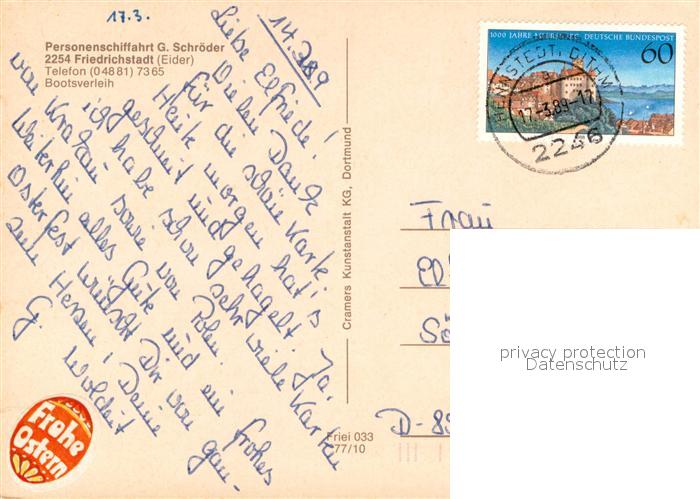 17.3.
Personenschiffahrt G. Schröder
2254 Friedrichstadt (Eider)
Telefon (04881) 7365
Bootsverleih
14.3.89
Liebe Elfriede!
Vielen Dank
für die schöne Karte!
Heute morgen hat's
geschneit und gehagelt. Ja,
ich habe schon sehr viele Karten
von Krakau sowie von Polen.
Weiterhin alles Gute und ein frohes
Osterfest wünscht Dir von gan-
zem Herzen! Deine
G. Woldeit
Frohe
Ostern
Cramers Kunstanstalt KG, Dortmund
Friei 033
77/10
1000 JAHRE MEERSBURG DEUTSCHE BUNDESPOST
60
HENNSTEDT, DITHM
a
17.-3.89-17
2246
Frau
El
Sö
D-89
privacy protection
Datenschutz